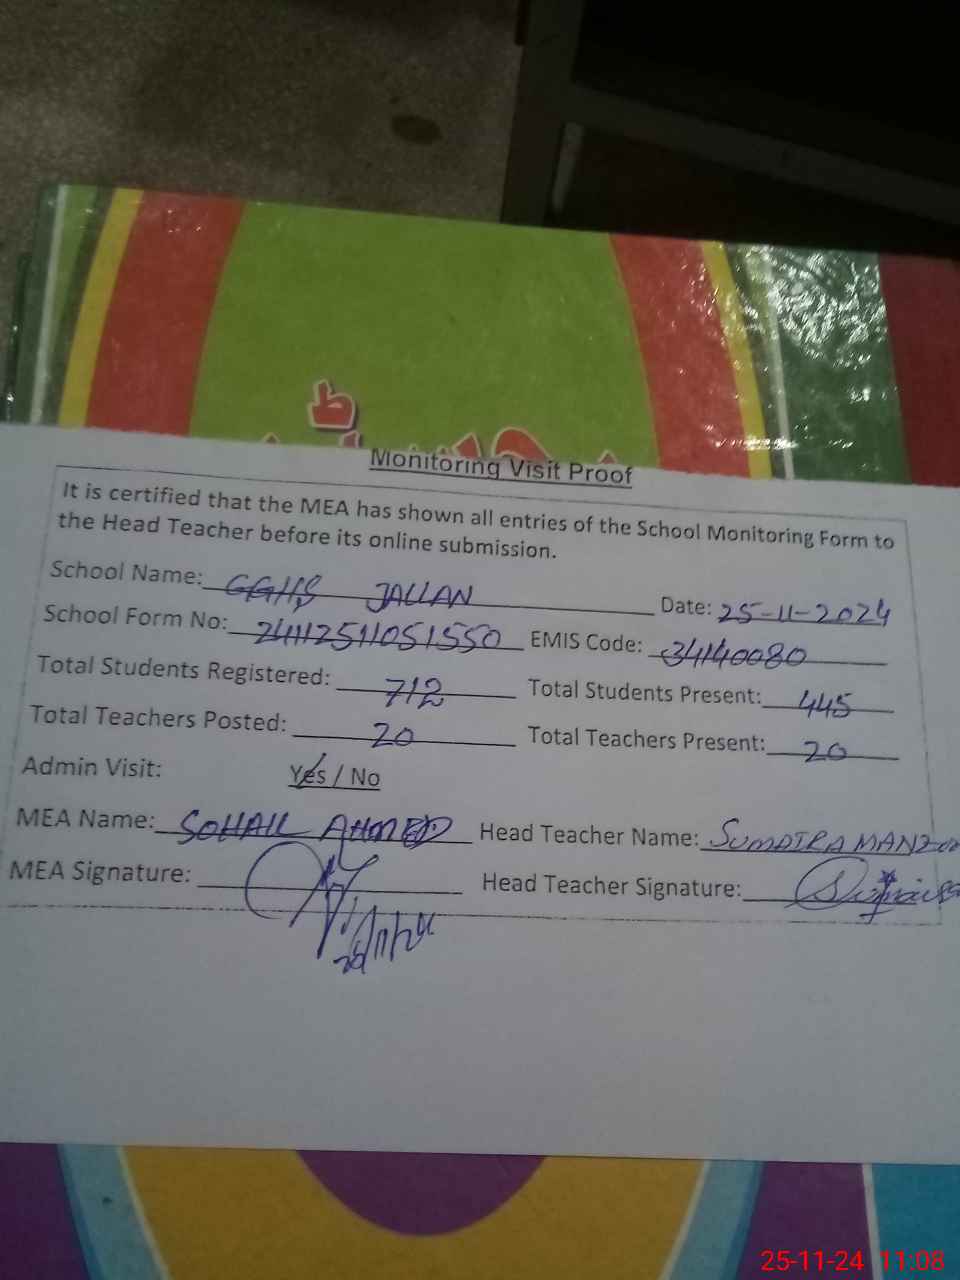 ط
Monitoring Visit Proof
It is certified that the MEA has shown all entries of the School Monitoring Form to
the Head Teacher before its online submission.
School Name: GGHS JALLAN Date: 25-11-2024
School Form No: 24112511051550 EMIS Code: 34140080
Total Students Registered: 712 Total Students Present: 445
Total Teachers Posted: 20 Total Teachers Present: 20
Admin Visit: Yes / No
MEA Name: SOHAIL AHMED Head Teacher Name: SUMAIRA MANZOO
MEA Signature: Head Teacher Signature:
25/11/24
25-11-24 11:08